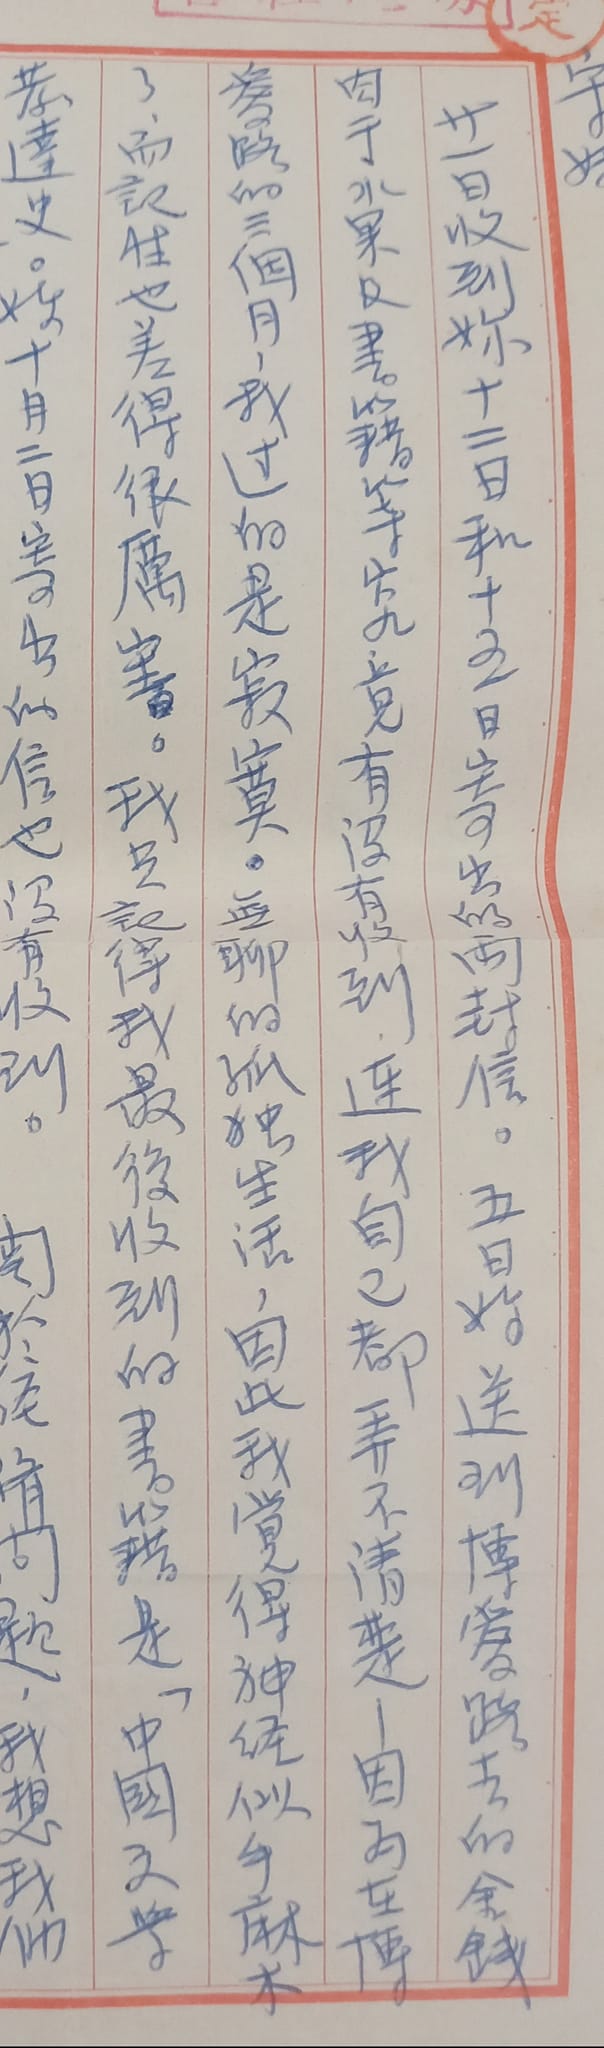 定
廿一日收到妳十二日和十五日寄出的兩封信。五日妳送到博愛路去的金錢
肉干水果及書籍等究竟有沒有收到，連我自己都弄不清楚—因為在博
愛路的三個月，我过的是寂寞。無聊的孤独生活，因此我覺得神经似乎麻木
了，而記性也差得很厲害。我只記得我最後收到的書籍是「中國文學
發達史。妳十月二日寄出的信也沒有收到。 關於经濟問題，我想我們